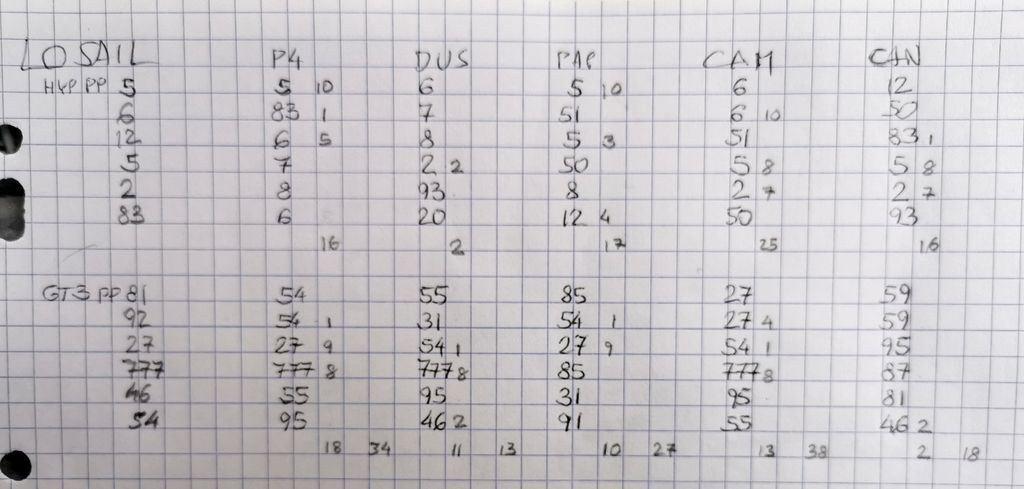 LOSAIL P4 DUS PAP CAM CAN
HYP PP 5 5 10 6 5 10 6 12
6 83 1 7 51 6 10 50
12 6 5 8 5 3 51 83 1
5 7 2 2 50 5 8 5 8
2 8 93 8 2 7 2 7
83 6 20 12 4 50 93
16 2 17 25 16
GT3 PP 81 54 55 85 27 59
92 54 1 31 54 1 27 4 59
27 27 9 54 1 27 9 54 1 95
777 777 8 777 8 85 777 8 87
46 55 95 31 95 81
54 95 46 2 91 55 46 2
18 34 11 13 10 27 13 38 2 18